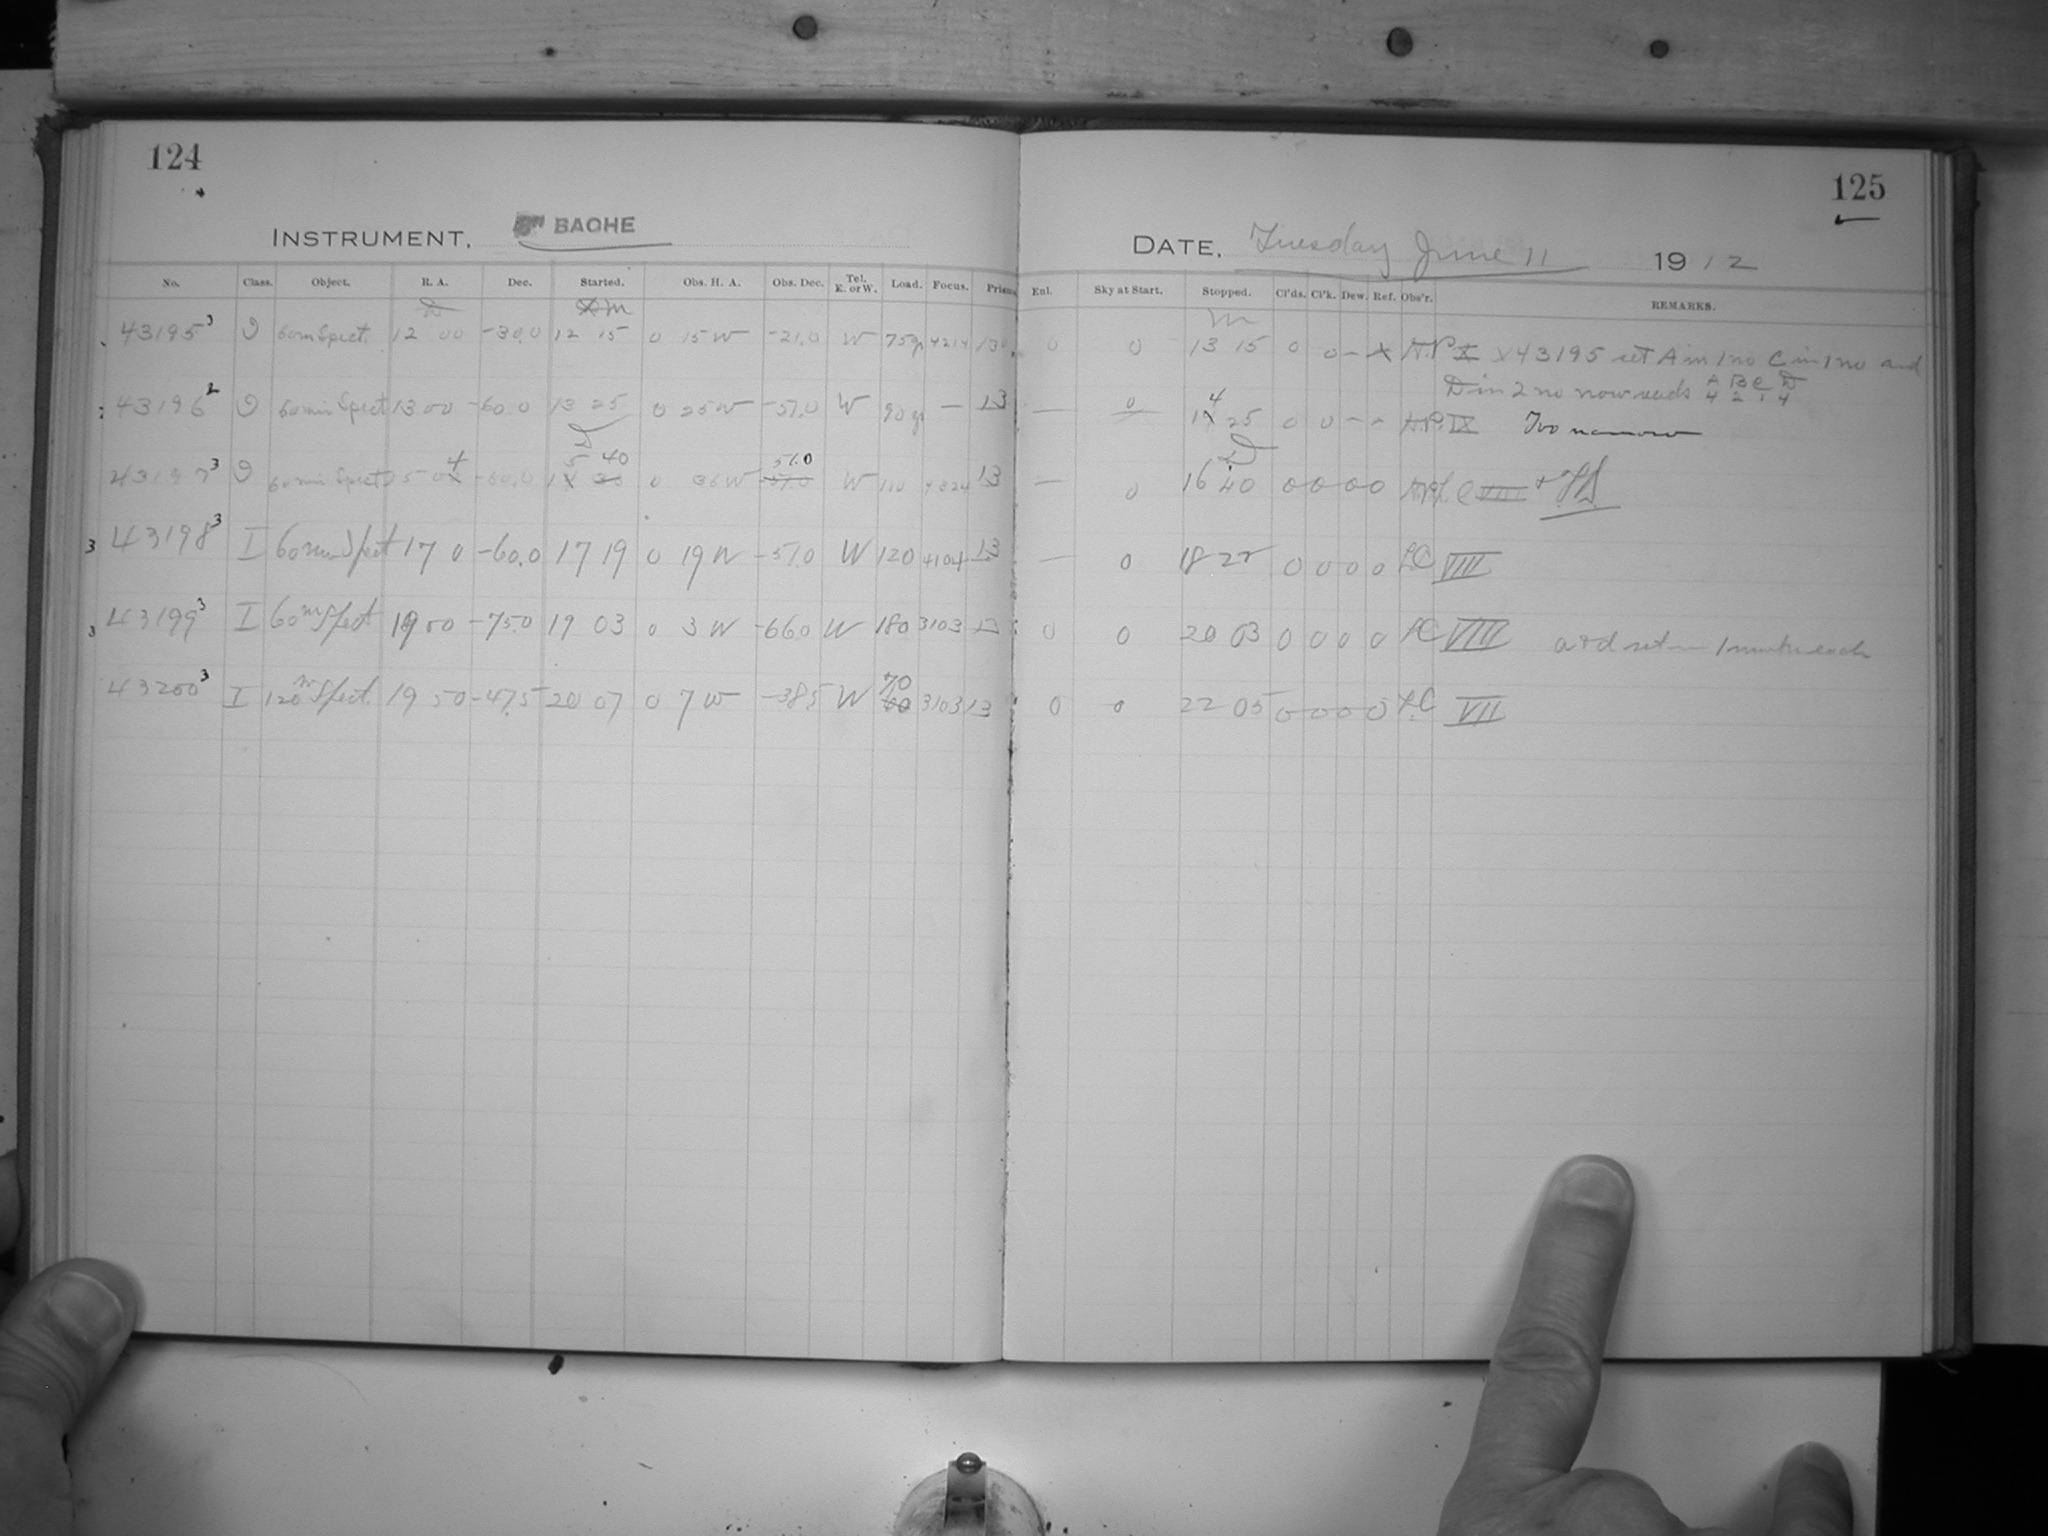 124
125
INSTRUMENT, BACHE
DATE, Tuesday June 11 1912
No. Class. Object. R. A. Dec. Started. Obs. H. A. Obs. Dec. Tel. E. or W. Load. Focus. Prism. Enl. Sky at Start. Stopped. Cl'ds. Cl'k. Dew. Ref. Obs'r. REMARKS.
m m
43195 3 60m Spect. 12 00 -30.0 12 15 0 15 W -21.0 W 75gr 4214 13 0 0 13 15 0 0 - X X 43195 set A in 1 no C in 1 no and
D in 2 no now reads A B C D
4 2 1 4
43196 2 60 min Spect 13 00 -60.0 13 25 0 25 W -51.0 W 90 gr — 13 — 0 14 25 0 0 - - IX Too narrow
43197 3 60 min Spect 15 04 -60.0 15 40 0 36 W 51.0 W 110 13 — 0 16 40 0 0 0 0
3 43198 3 I 60 min Spect 17 0 -60.0 17 19 0 19 W -51.0 W 120 4104 13 — 0 18 22 0 0 0 0 LC VIII
3 43199 3 I 60m Spect. 19 00 -75.0 19 03 0 3 W -66.0 W 180 3103 13 0 0 20 03 0 0 0 0 LC VIII a & d set 1 each
43200 3 I 120m Spect. 19 50 -47.5 20 07 0 7 W -38.5 W 70 3103 13 0 0 22 05 0 0 0 0 LC VII